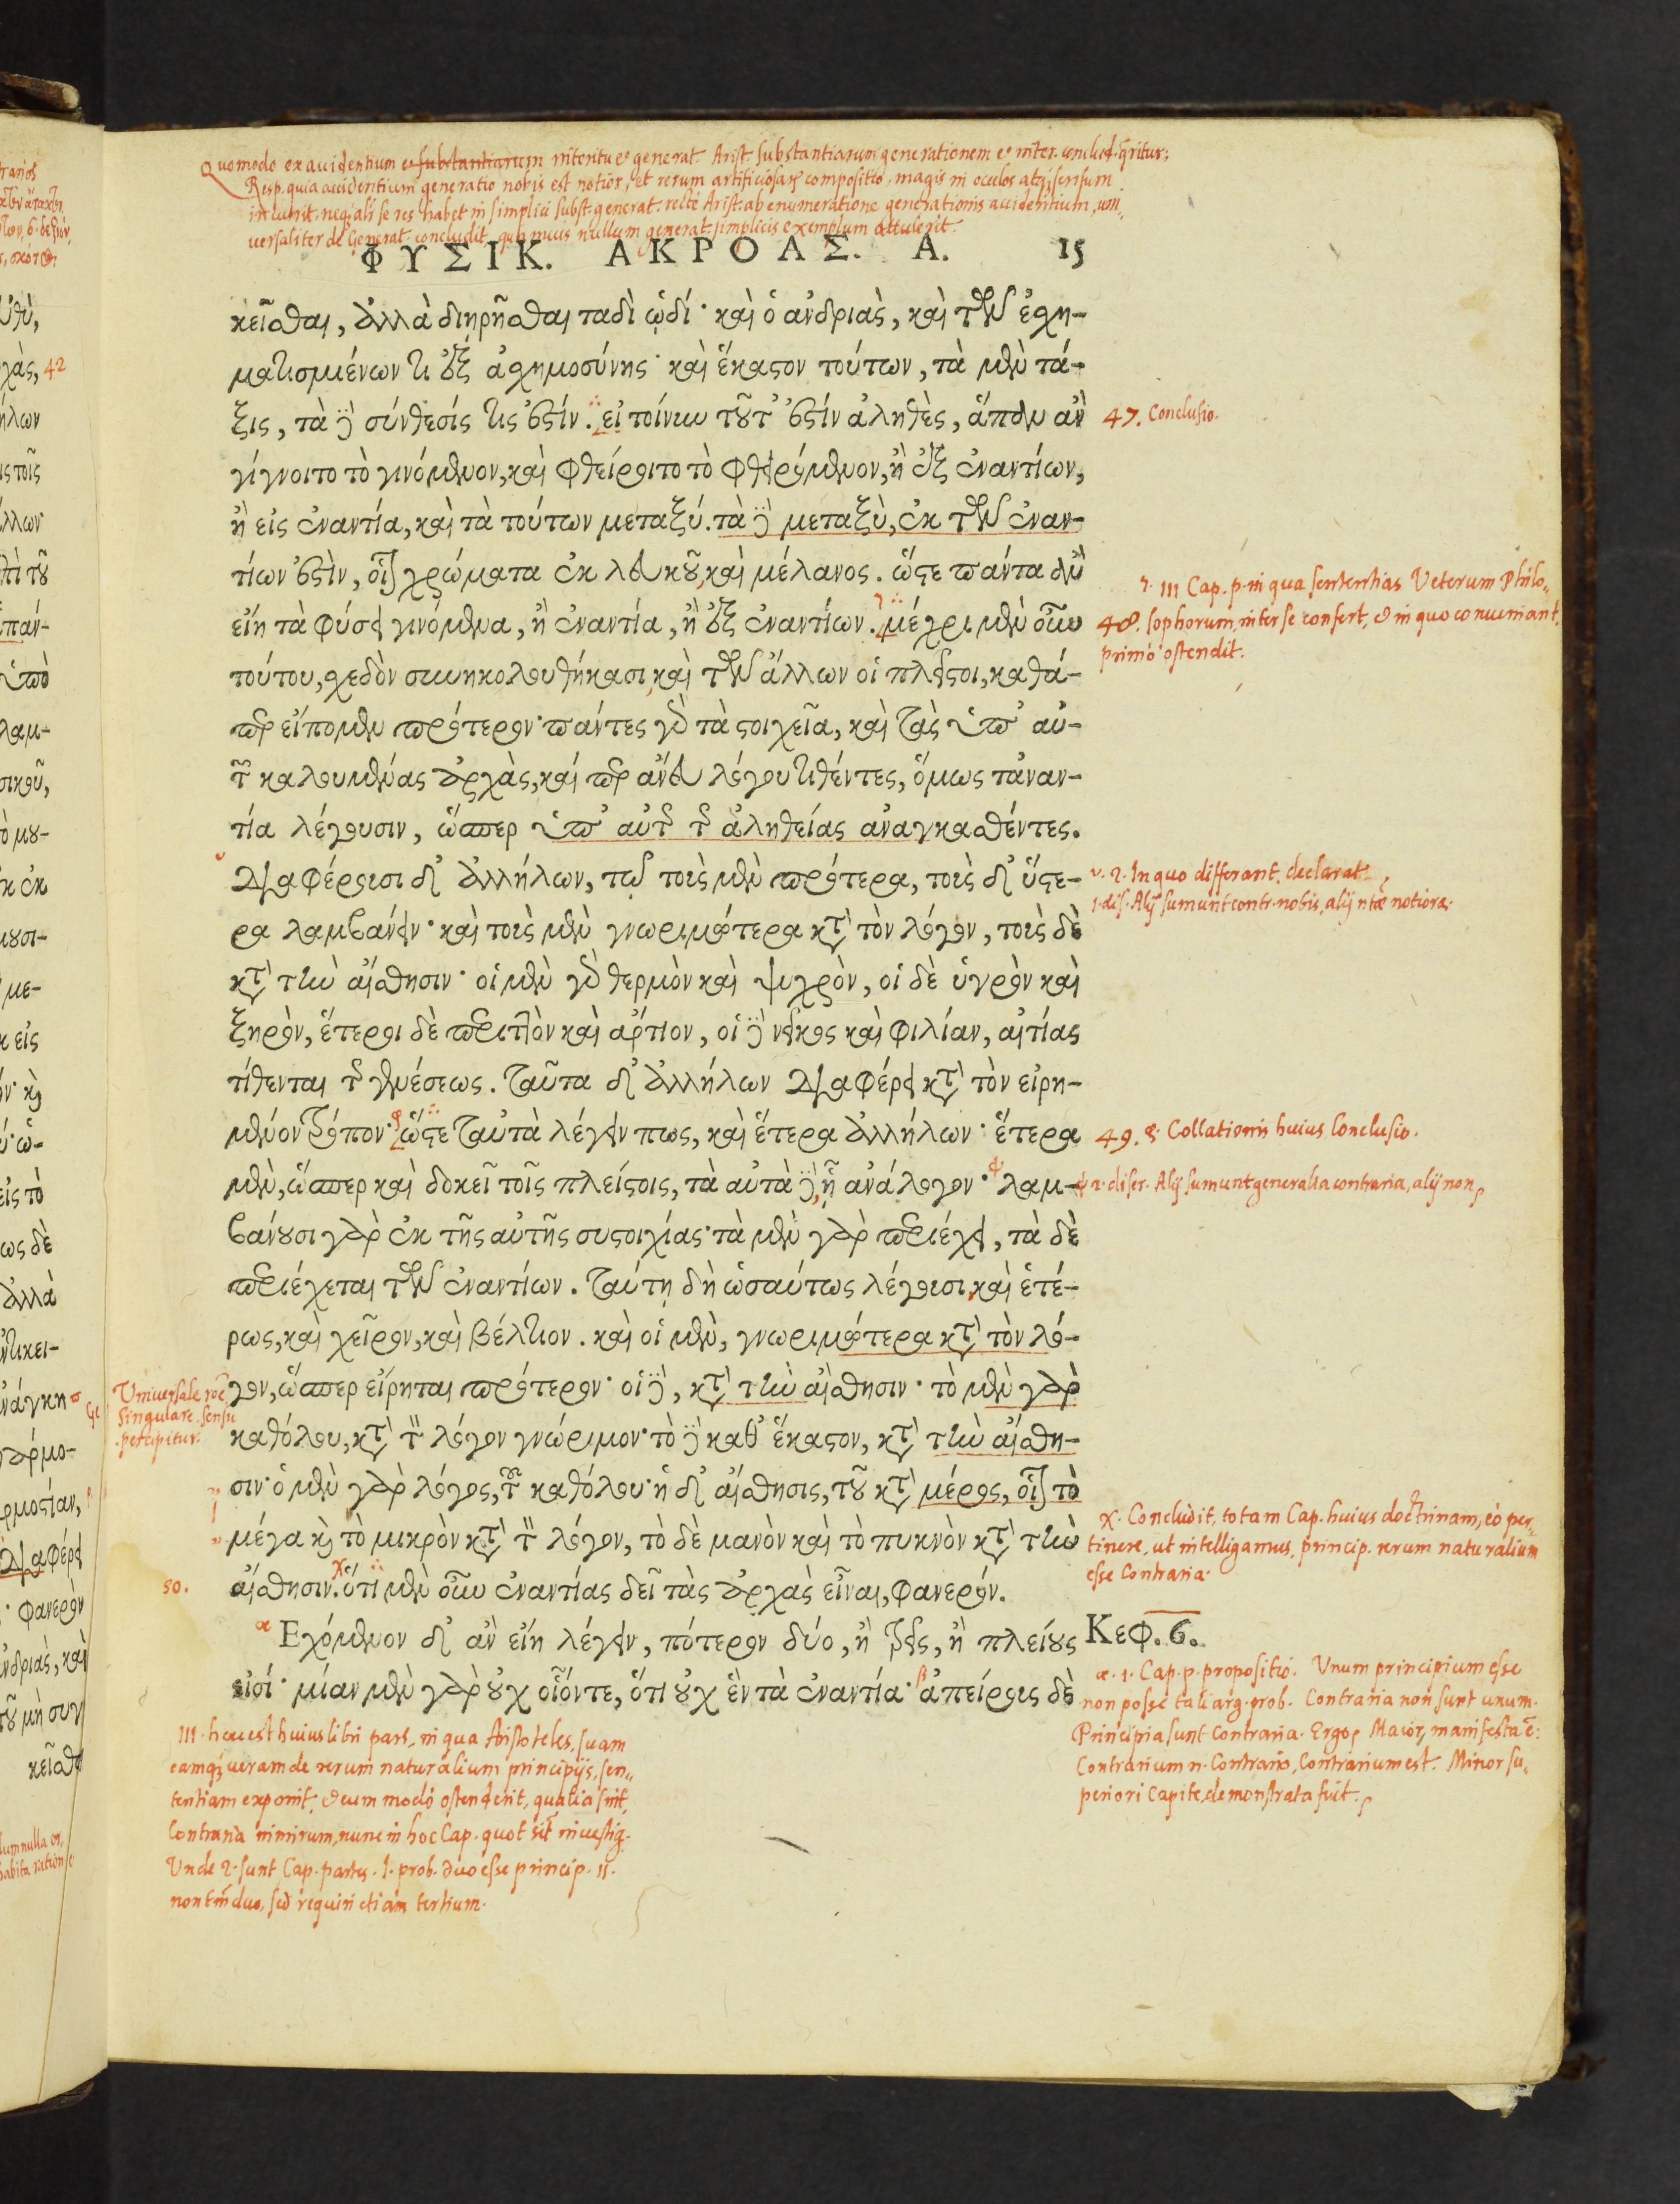 Quomodo ex accidentium et substantiarum interitu et generat. Arist. substantiarum generationem et inter. conclud. qritur;
Resp. quia accidentium generatio nobis est notior, et rerum artificiosarum compositio, magis in oculos atq; sensum
incurrit. neq; ali se res habet in simplici subst. generat. recte Arist. ab enumeratione generationis accidentium, uni„
versaliter de Generat. concludit, quamvis nullum generat. simplicis exemplum attulerit.
ΦΥΣΙΚ. ΑΚΡΟΑΣ. Α. 15
κεῖσθαι, ἀλλὰ διηρῆσθαι ταδὶ ᾡδί· καὶ ὁ ἀνδριὰς, καὶ τῶν ἐσχη-
ματισμένων τι ἐξ ἀσχημοσύνης· καὶ ἕκαστον τούτων, τὰ μὲν τά-
ξις, τὰ δὲ σύνθεσίς τις ἐστίν. εἰ τοίνυν τοῦτ᾽ ἐστὶν ἀληθὲς, ἅπαν ἂν
47. Conclusio.
γίγνοιτο τὸ γινόμενον, καὶ φθείροιτο τὸ φθειρόμενον, ἢ ἐξ ἐναντίων,
ἢ εἰς ἐναντία, καὶ τὰ τούτων μεταξύ. τὰ δὲ μεταξὺ, ἐκ τῶν ἐναν-
τίων ἐστὶν, οἷον χρώματα ἐκ λευκοῦ καὶ μέλανος. ὥστε πάντα ἂν
εἴη τὰ φύσει γινόμενα, ἢ ἐναντία, ἢ ἐξ ἐναντίων. μέχρι μὲν οὖν
III Cap. p. in qua sententias Veterum Philo„
48. sophorum, inter se confert, & in quo conveniant,
primo ostendit.
τούτου, σχεδὸν συνηκολουθήκασι καὶ τῶν ἄλλων οἱ πλεῖστοι, καθά-
περ εἴπομεν πρότερον· πάντες γὰρ τὰ στοιχεῖα, καὶ τὰς ὑπ᾽ αὐ-
τῶν καλουμένας ἀρχὰς, καί περ ἄνευ λόγου τιθέντες, ὅμως τἀναν-
τία λέγουσιν, ὥσπερ ὑπ᾽ αὐτῆς τῆς ἀληθείας ἀναγκασθέντες.
Διαφέρουσι δ᾽ ἀλλήλων, τῷ τοὺς μὲν πρότερα, τοὺς δ᾽ ὕστε-
2. In quo differant, declarat
1. dif. Alij sumunt contr. nobis, alij ntæ notiora.
ρα λαμβάνειν· καὶ τοὺς μὲν γνωριμώτερα κατὰ τὸν λόγον, τοὺς δὲ
κατὰ τὴν αἴσθησιν· οἱ μὲν γὰρ θερμὸν καὶ ψυχρὸν, οἱ δὲ ὑγρὸν καὶ
ξηρὸν, ἕτεροι δὲ περιττὸν καὶ ἄρτιον, οἱ δὲ νεῖκος καὶ φιλίαν, αἰτίας
τίθενται τῆς γενέσεως. Ταῦτα δ᾽ ἀλλήλων διαφέρει κατὰ τὸν εἰρη-
μένον τρόπον· ὥστε ταὐτὰ λέγειν πως, καὶ ἕτερα ἀλλήλων· ἕτερα
49. Collationis huius Conclusio.
μὲν, ὥσπερ καὶ δοκεῖ τοῖς πλείστοις, τὰ αὐτὰ δὲ, ᾗ ἀνάλογον· λαμ-
ψ 2. difer. Alij sumunt generalia contraria, alij non
βάνουσι γὰρ ἐκ τῆς αὐτῆς συστοιχίας· τὰ μὲν γὰρ περιέχει, τὰ δὲ
περιέχεται τῶν ἐναντίων. Ταύτῃ δὴ ὡσαύτως λέγουσι καὶ ἑτέ-
ρως, καὶ χεῖρον, καὶ βέλτιον. καὶ οἱ μὲν, γνωριμώτερα κατὰ τὸν λό-
γον, ὥσπερ εἴρηται πρότερον· οἱ δὲ, κατὰ τὴν αἴσθησιν· τὸ μὲν γὰρ
Universale
Singulare, sensu
percipitur.
καθόλου, κατὰ τὸν λόγον γνώριμον· τὸ δὲ καθ᾽ ἕκαστον, κατὰ τὴν αἴσθη-
σιν· ὁ μὲν γὰρ λόγος, τῶν καθόλου· ἡ δ᾽ αἴσθησις, τοῦ κατὰ μέρος, οἷον τὸ
μέγα καὶ τὸ μικρὸν κατὰ τὸν λόγον, τὸ δὲ μανὸν καὶ τὸ πυκνὸν κατὰ τὴν
50. αἴσθησιν. ὅτι μὲν οὖν ἐναντίας δεῖ τὰς ἀρχὰς εἶναι, φανερόν.
χ. Concludit, totam Cap. huius doctrinam, eò per„
tinere, ut intelligamus, princip. rerum naturalium
esse Contraria.
α Ἐχόμενον δ᾽ ἂν εἴη λέγειν, πότερον δύο, ἢ τρεῖς, ἢ πλείους
Κεφ. 6.
εἰσί· μίαν μὲν γὰρ οὐχ οἷόντε, ὅτι οὐχ ἓν τὰ ἐναντία· β ἀπείρους δὲ
α. 1. Cap. p. propositio. Unum principium esse
non posse tali arg. prob. Contraria non sunt unum.
Principia sunt Contraria. Ergo, Maior, manifesta ē:
Contrarium n. Contrario, Contrarium est. Minor su„
periori Capite, demonstrata fuit.
III. hæc est huius libri pars, in qua Aristoteles, suam
eamq; veram de rerum naturalium principijs, sen„
tentiam exponit, & cum modò ostenderit, qualia sint,
Contraria nimirum, nunc in hoc Cap. quot sit investig.
Unde 2. sunt Cap. partes. I. prob. duo esse princip. II.
non tm̄ duo, sed requiri etiam tertium.